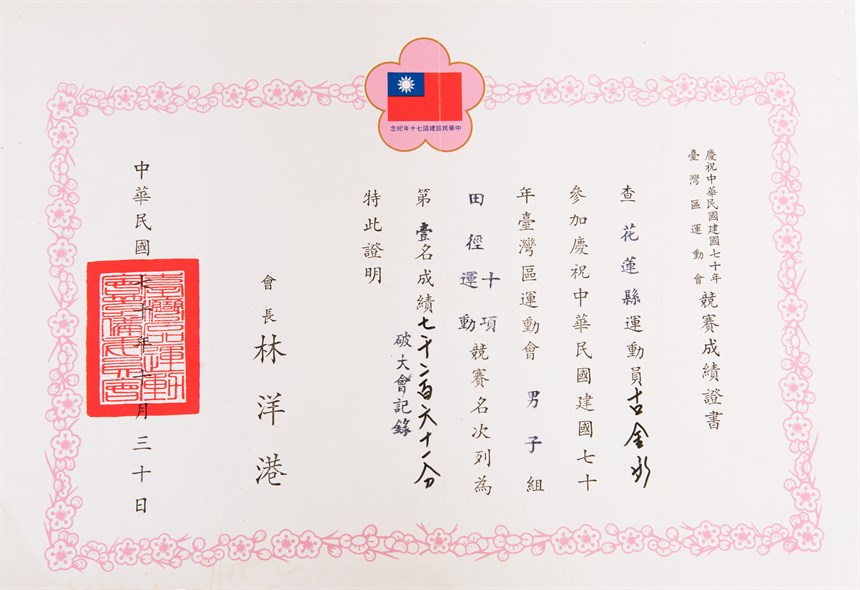 中華民國建國七十年紀念
慶祝中華民國建國七十年
臺灣區運動會
競賽成績證書
查花蓮縣運動員古金水
參加慶祝中華民國建國七十
年臺灣區運動會男子組
田徑運動十項競賽名次列為
第壹名成績七千二百六十一分
破大會記錄
特此證明
會長林洋港
中華民國七十年十月三十日
臺灣區運動
會籌備委員會